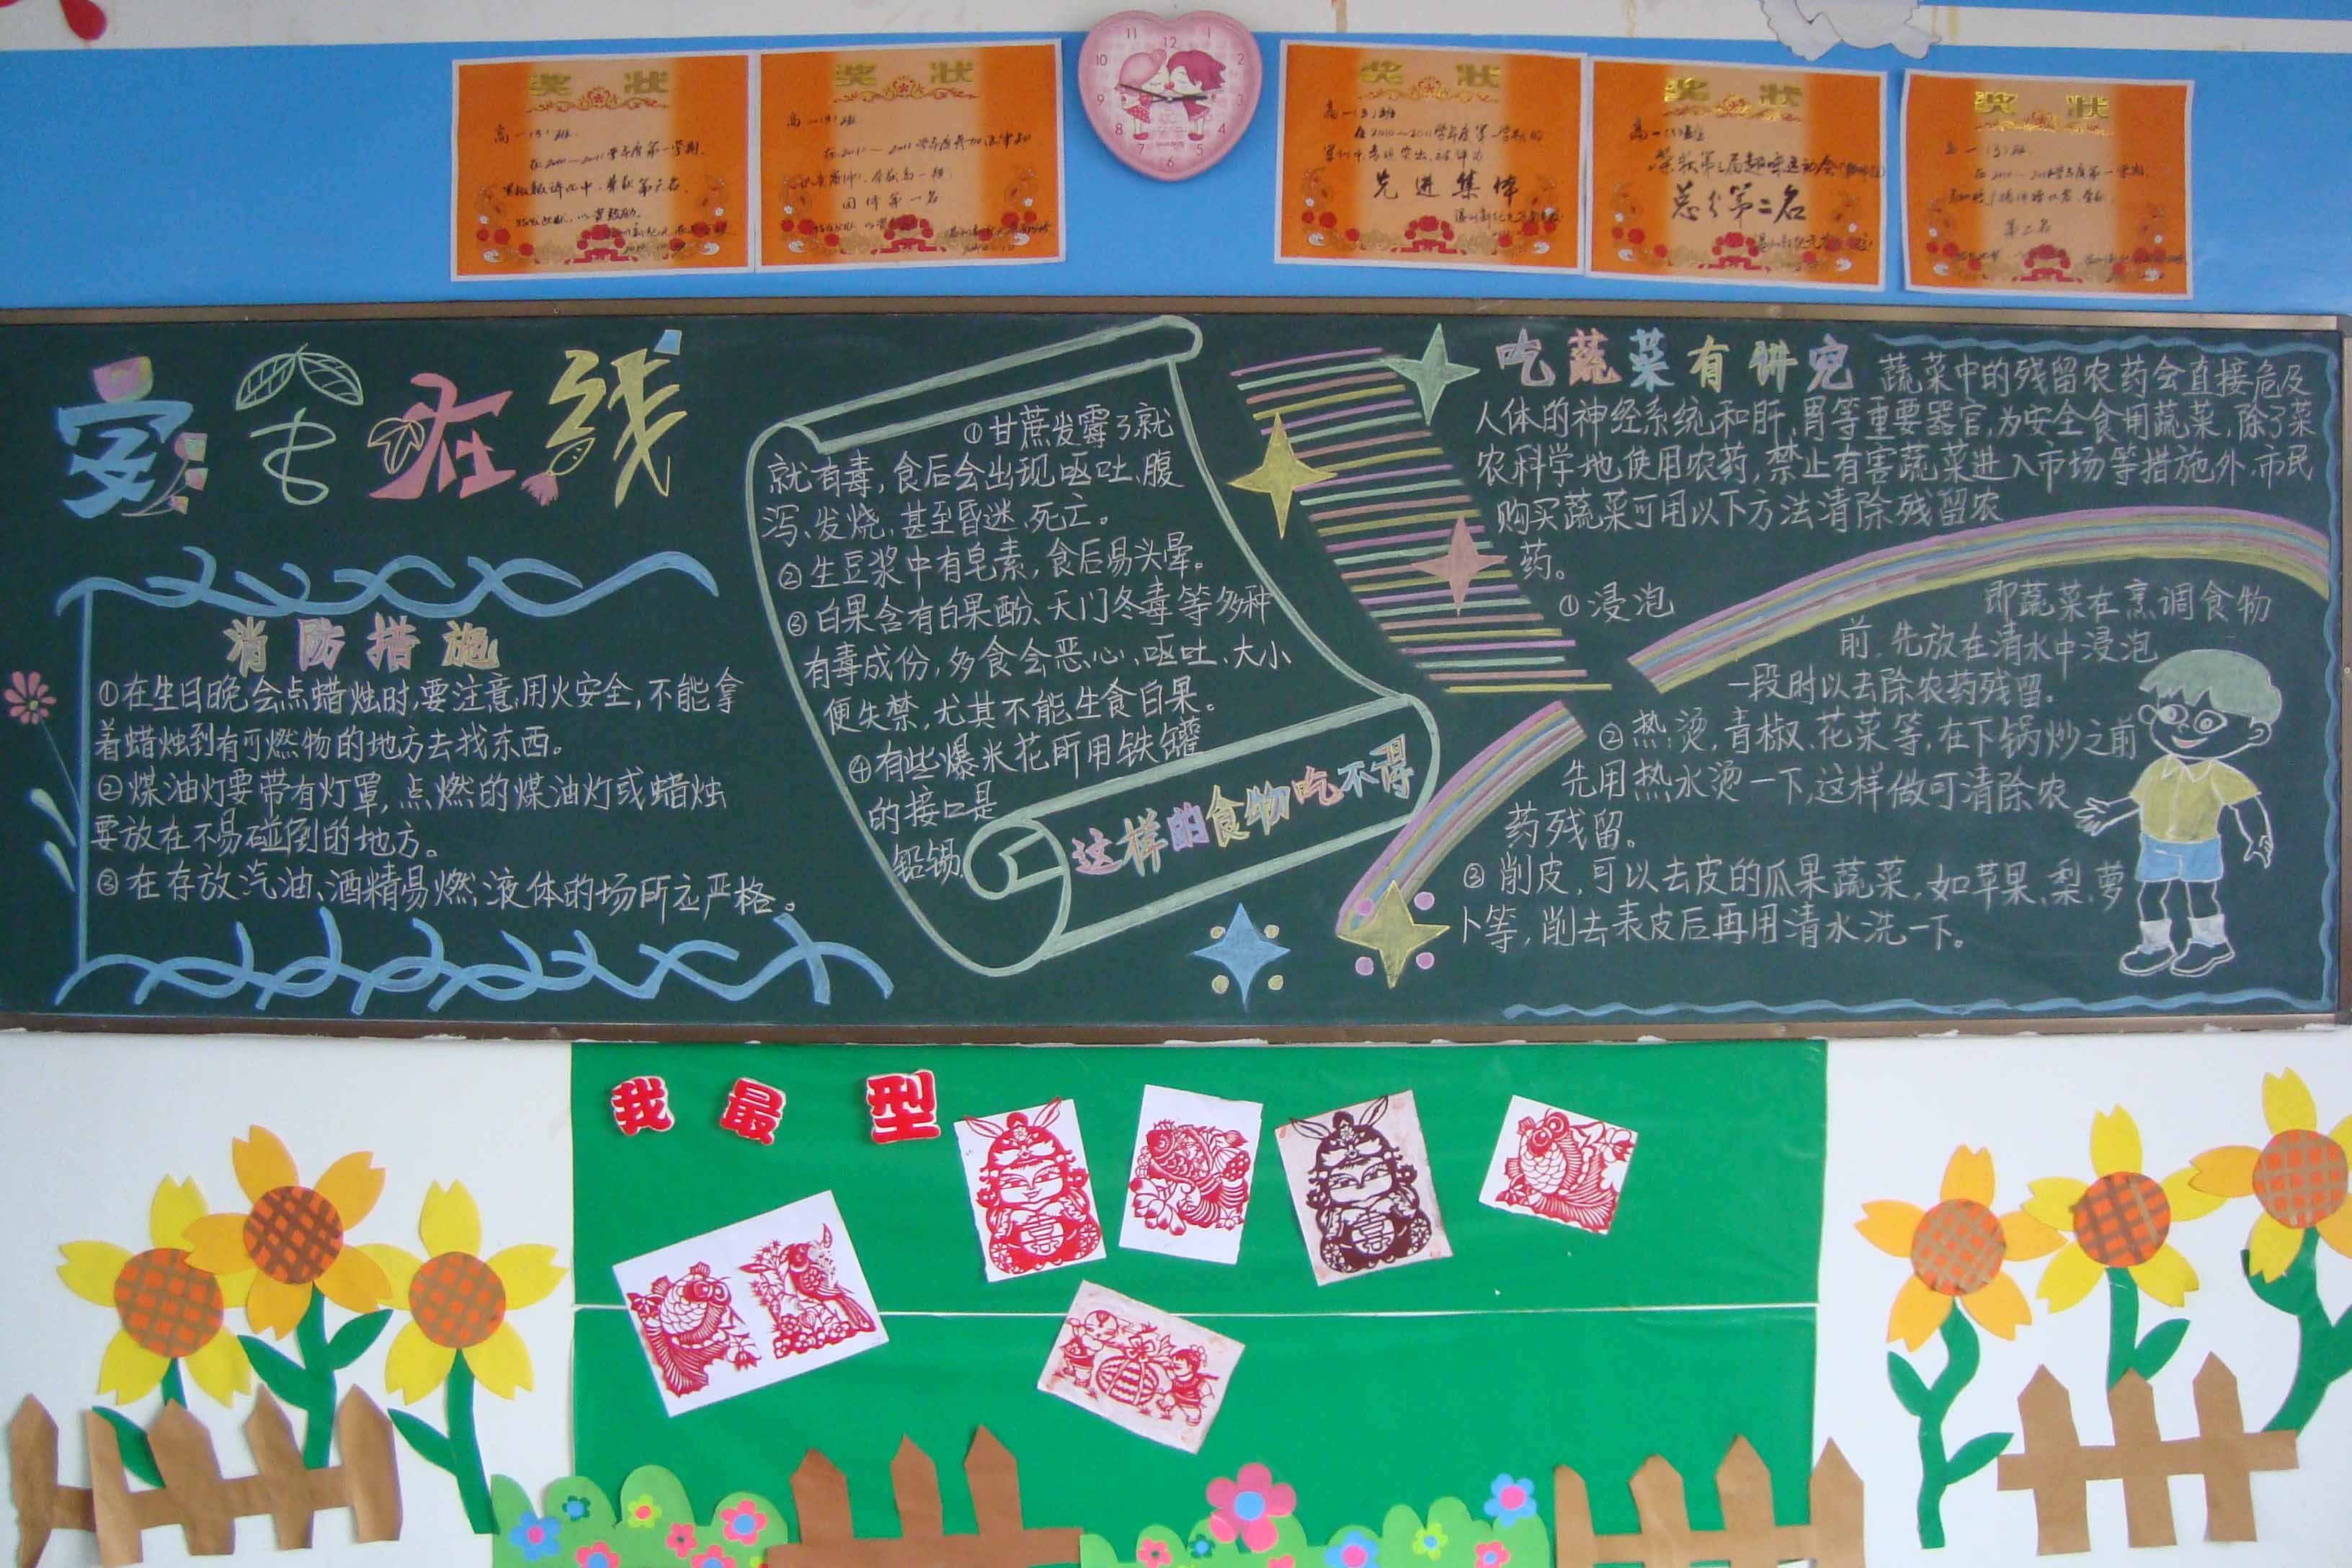 奖状
高一(3)班
在2010~2011学年度第一学期
黑板报评比中,荣获第六名
特发此状,以资鼓励。
奖状
高一(3)班
在2010~2011学年度参加法律知
团体第一名
奖状
高一(3)班
在2010~2011学年度第一学期的
先进集体
奖状
高一(3)班
荣获第三届趣味运动会
总分第二名
奖状
高一(3)班
第二名
11 12 1
10 2
9 3
8 4
7 6 5
安全在线
消防措施
①在生日晚会点蜡烛时,要注意用火安全,不能拿
着蜡烛到有可燃物的地方去找东西。
②煤油灯要带有灯罩,点燃的煤油灯或蜡烛
要放在不易碰倒的地方。
③在存放汽油、酒精易燃液体的场所应严格。
①甘蔗发霉了就
就有毒,食后会出现呕吐、腹
泻、发烧,甚至昏迷、死亡。
②生豆浆中有皂素,食后易头晕。
③白果含有白果酚、天门冬毒等多种
有毒成份,多食会恶心、呕吐、大小
便失禁,尤其不能生食白果。
④有些爆米花所用铁罐
的接口是
铅锡
这样的食物吃不得
吃蔬菜有讲究
蔬菜中的残留农药会直接危及
人体的神经系统和肝、胃等重要器官,为安全食用蔬菜,除了菜
农科学地使用农药,禁止有害蔬菜进入市场等措施外,市民
购买蔬菜可用以下方法清除残留农
药。
①浸泡
即蔬菜在烹调食物
前,先放在清水中浸泡
一段时以去除农药残留。
②热烫,青椒、花菜等,在下锅炒之前
先用热水烫一下,这样做可清除农
药残留。
③削皮,可以去皮的瓜果蔬菜,如苹果、梨、萝
卜等,削去表皮后再用清水洗一下。
我最型
喜
喜